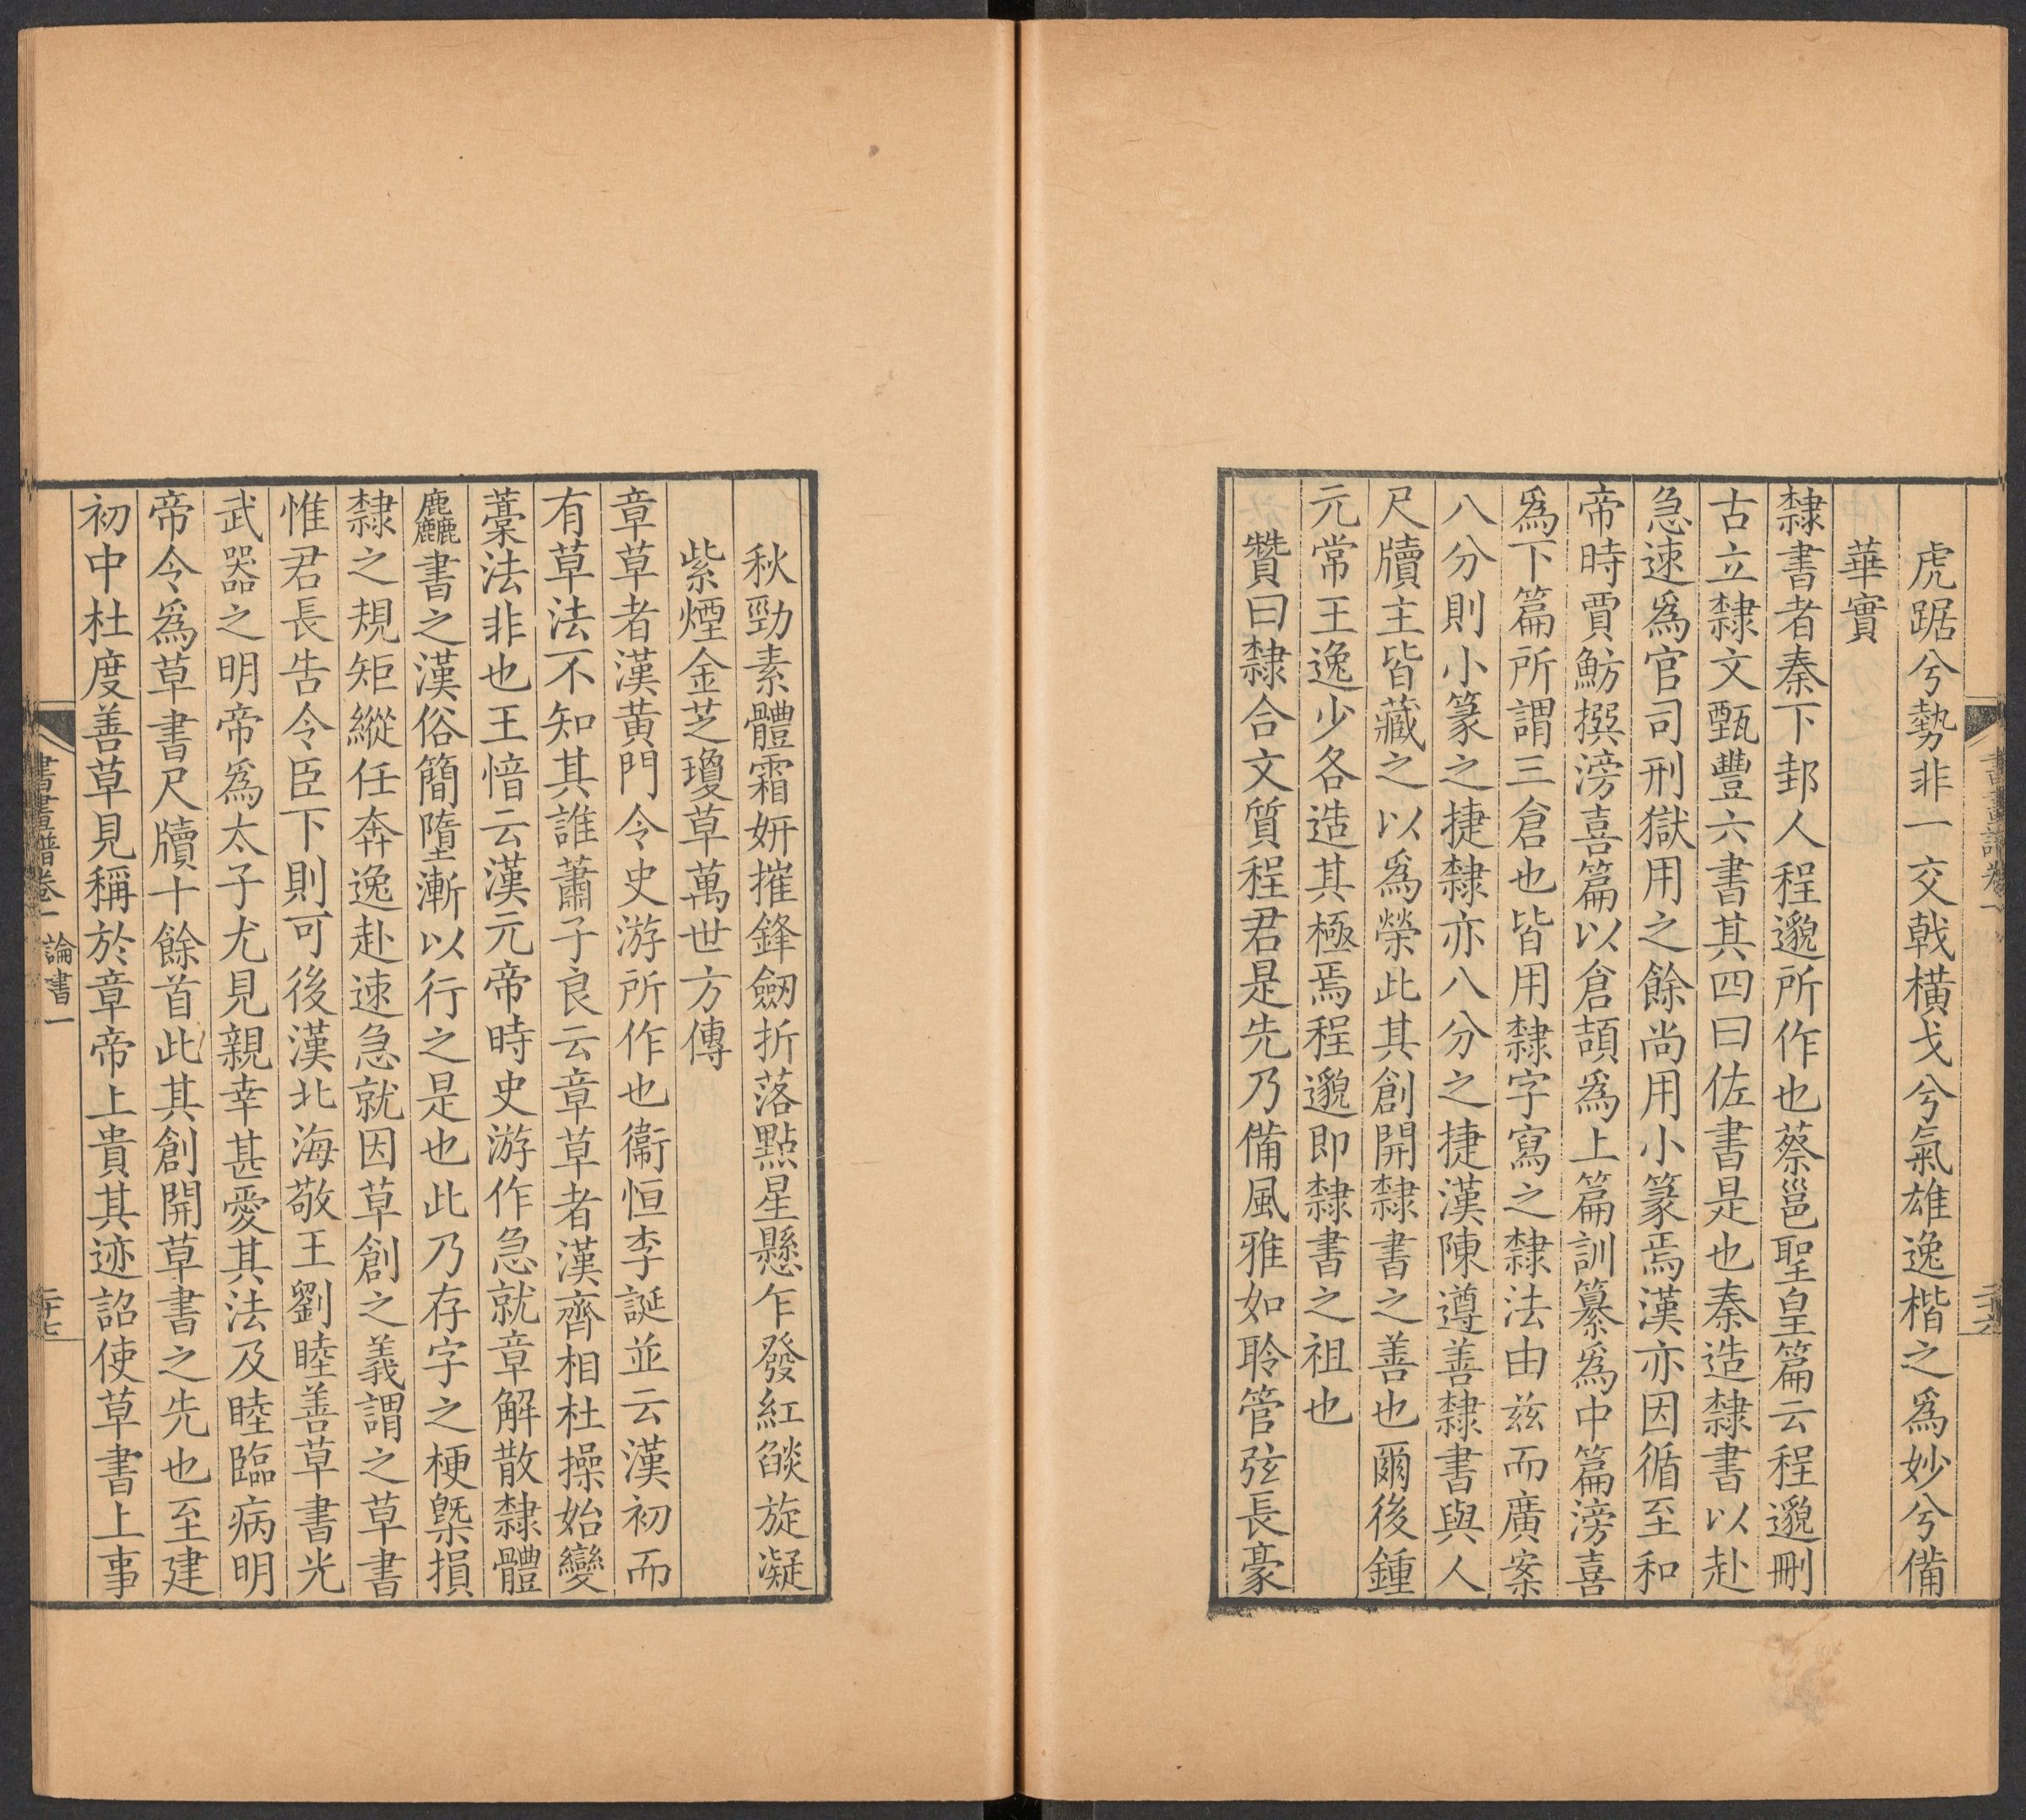 虎踞兮勢非一交戟橫戈兮氣雄逸楷之爲妙兮備
華實
隸書者秦下邽人程邈所作也蔡邕聖皇篇云程邈刪
古立隸文甄豐六書其四曰佐書是也秦造隸書以赴
急速爲官司刑獄用之餘尚用小篆焉漢亦因循至和
帝時賈魴撰滂喜篇以倉頡爲上篇訓纂爲中篇滂喜
爲下篇所謂三倉也皆用隸字寫之隸法由茲而廣案
八分則小篆之捷隸亦八分之捷漢陳遵善隸書與人
尺牘主皆藏之以爲榮此其創開隸書之善也爾後鍾
元常王逸少各造其極焉程邈即隸書之祖也
贊曰隸合文質程君是先乃備風雅如聆管弦長豪
秋勁素體霜妍摧鋒劒折落點星懸乍發紅燄旋凝
紫煙金芝瓊草萬世方傳
章草者漢黃門令史游所作也衞恒李誕並云漢初而
有草法不知其誰蕭子良云章草者漢齊相杜操始變
藁法非也王愔云漢元帝時史游作急就章解散隸體
麤書之漢俗簡墮漸以行之是也此乃存字之梗槩損
隸之規矩縱任奔逸赴速急就因草創之義謂之草書
惟君長告令臣下則可後漢北海敬王劉睦善草書光
武器之明帝爲太子尤見親幸甚愛其法及睦臨病明
帝令爲草書尺牘十餘首此其創開草書之先也至建
初中杜度善草見稱於章帝上貴其迹詔使草書上事
書畫譜卷一 論書一
二十七